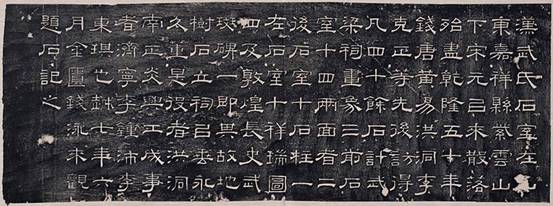 漢武氏石室在山
東嘉祥縣紫雲山
下宋元㠯來散落
殆盡乾隆五十年
錢唐黃易洪洞李
克正等先後訪得
凡四十餘石計武
梁祠畫象三前石
室十四兩面者二
後石室十石柱一
左石室十祥瑞圖
四及敦煌長史武
斑碑一即其故地
樹石立祠㠯垂永
久董是役者洪洞
南正炎興正成事
者濟寧李鍾沛李
東琪也越七年六
月金匱錢泳來觀
題石記之